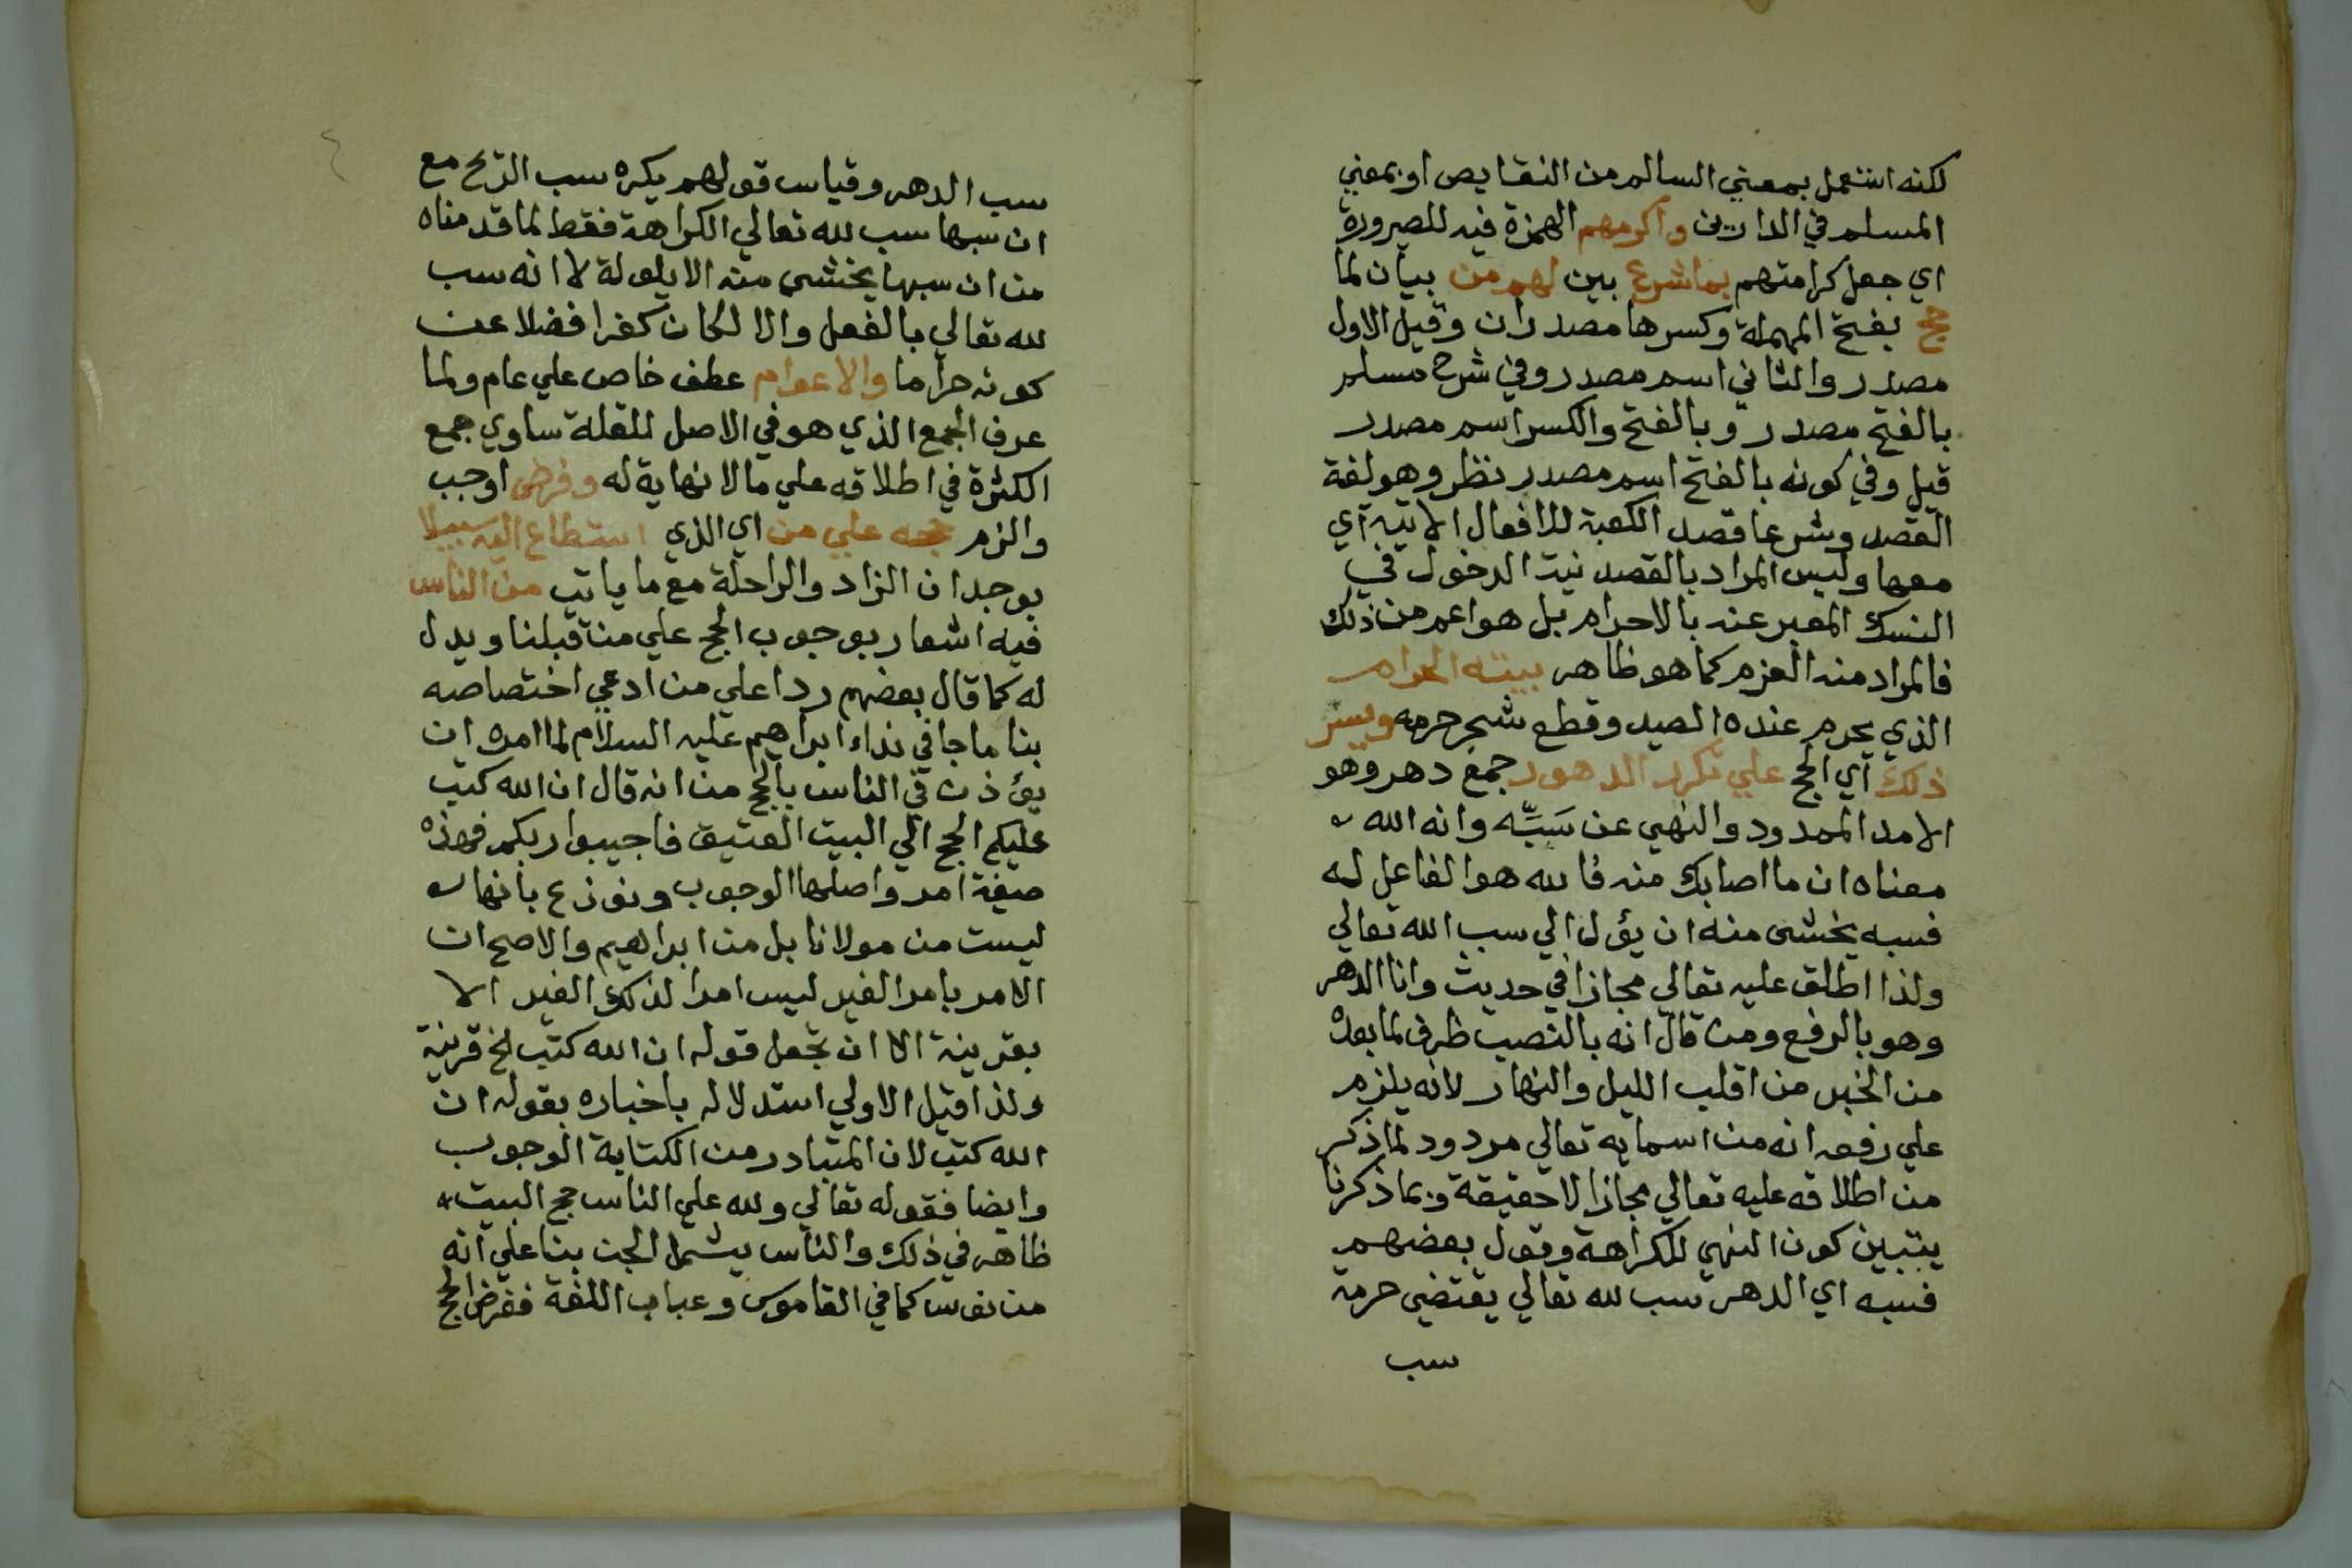 لكنه استعمل بمعني السالم من النقايص او بمعني
المسلم في الدارين واكرمهم الهمزة فيه للصيرورة
اي جعل كرامتهم بما شرع بين لهم من بيان لما
حج بفتح المهملة وكسرها مصدران وقيل الاول
مصدر والثاني اسم مصدر وفي شرح مسلم
بالفتح مصدر وبالفتح والكسر اسم مصدر
قيل وفي كونه بالفتح اسم مصدر نظر وهو لغة
القصد وشرعا قصد الكعبة للافعال الاتية اي
معها وليس المراد بالقصد نية الدخول في
النسك المعبر عنه بالاحرام بل هو اعم من ذلك
فالمراد منه العزم كما هو ظاهر بيته الحرام
الذي يحرم عنده الصيد وقطع شجر حرمه ويسر
ذلك اي الحج علي تكرر الدهور جمع دهر وهو
الامد الممدود والنهي عن سَبِّه وانه الله
معناه ان ما اصابك منه فالله هو الفاعل له
فسبه يخشى منه ان يؤل الي سب الله تعالي
ولذا اطلق عليه تعالي مجازا في حديث وانا الدهر
وهو بالرفع ومن قال انه بالنصب ظرف لما بعده
من الخبر من اقلب الليل والنهار لانه يلزم
علي رفعه انه من اسمايه تعالي مردود لما ذكر
من اطلاقه عليه تعالي مجازا لا حقيقة وبما ذكرنا
يتبين كون النهي للكراهة وقول بعضهم
فسبه اي الدهر سب لله تعالي يقتضي حرمة
سب
سب الدهر وقياس قولهم يكره سب الريح مع
ان سبها سب لله تعالي الكراهة فقط لما قدمناه
من ان سبها يخشى منه الايلولة لا انه سب
لله تعالي بالفعل والا لكان كفرا فضلا عن
كونه حراما والاعوام عطف خاص علي عام ولما
عرف الجمع الذي هو في الاصل للقلة ساوي جمع
الكثرة في اطلاقه علي ما لا نهاية له وفرض اوجب
والزم حجه علي من اي الذي استطاع اليه سبيلا
بوجدان الزاد والراحلة مع ما ياتي من الناس
فيه اشعار بوجوب الحج علي من قبلنا ويدل
له كما قال بعضهم ردا علي من ادعي اختصاصه
بنا ما جا في نداء ابراهيم عليه السلام لما امره ان
يؤذن في الناس بالحج من انه قال ان الله كتب
عليكم الحج الي البيت العتيق فاجيبوا ربكم فهذه
صيغة امر واصلها الوجوب ونوزع بانها
ليست من مولانا بل من ابراهيم والاصح ان
الامر بامر الغير ليس امرا لذلك الغير الا
بقرينة الا ان تجعل قوله ان الله كتب الخ قرينة
ولذا قيل الاولي استدلاله باخباره بقوله ان
الله كتب لان المتبادر من الكتابة الوجوب
وايضا فقوله تعالي ولله علي الناس حج البيت
ظاهر في ذلك والناس يشمل الجن بنا علي انه
من نوس كما في القاموس وعباب اللغة ففرض الحج